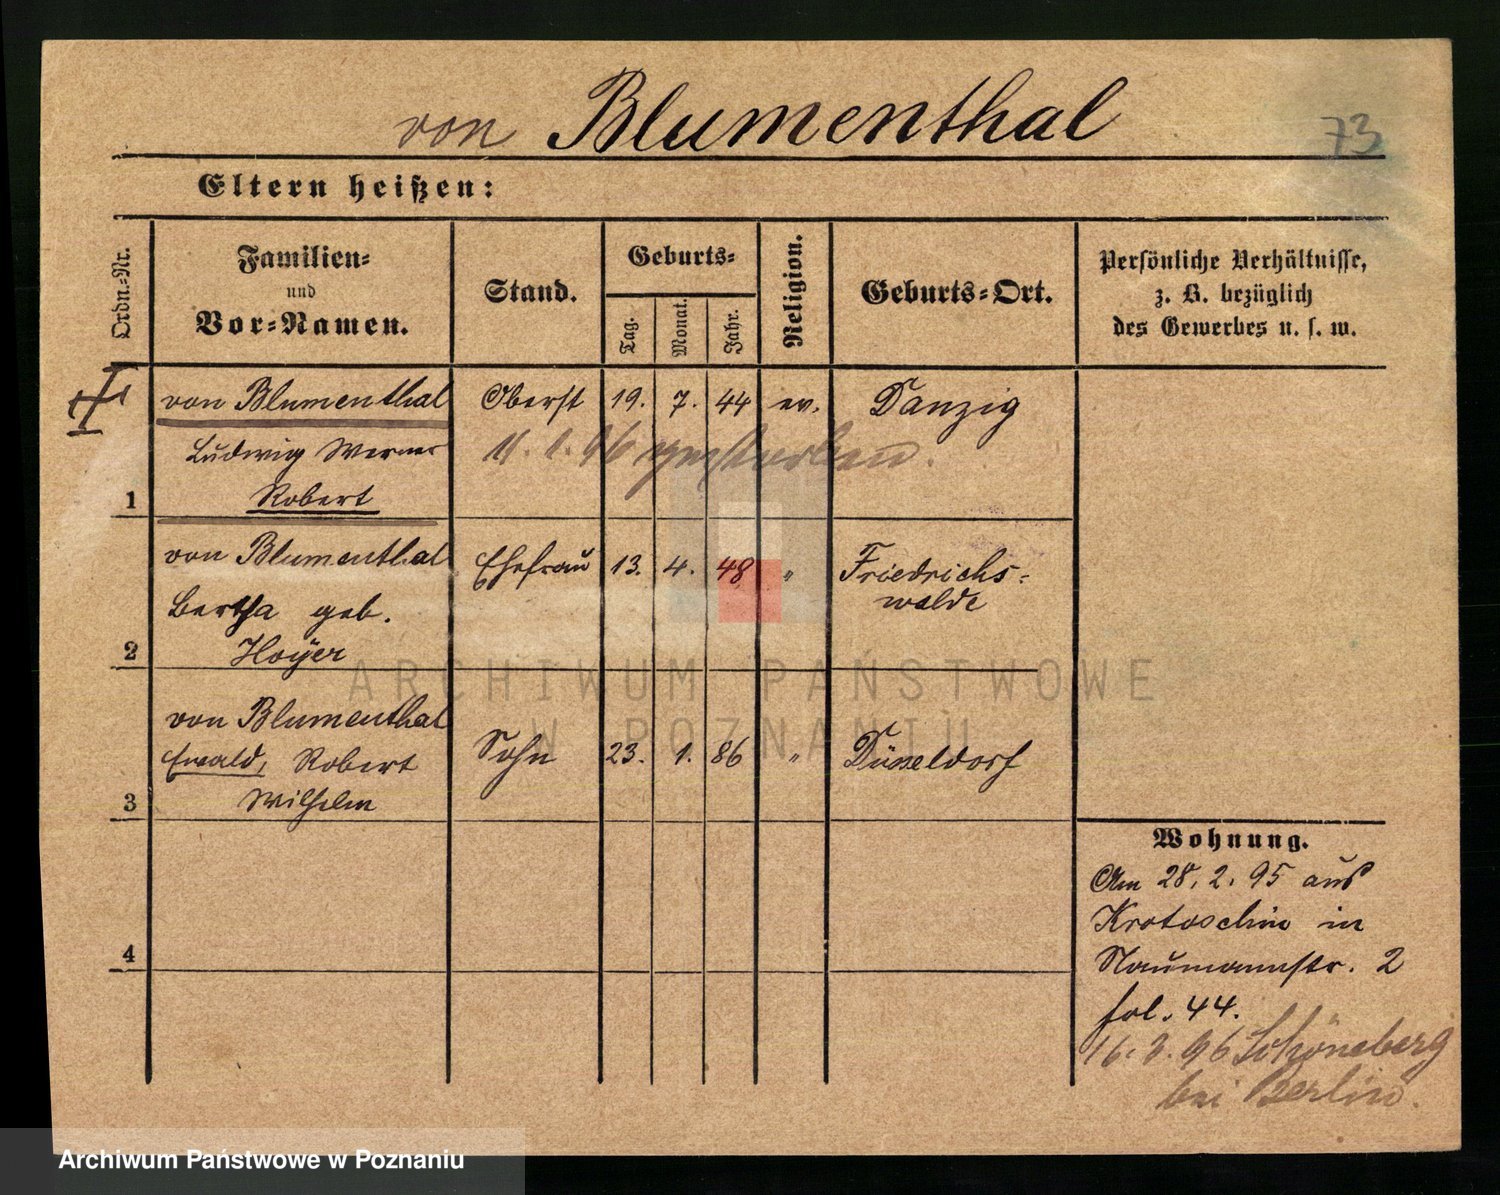 von Blumenthal
73
Eltern heißen:
Ordn.-Nr.
Familien-
und
Vor-Namen.
Stand.
Geburts-
Tag.
Monat.
Jahr.
Religion.
Geburts-Ort.
Persönliche Verhältnisse,
z. B. bezüglich
des Gewerbes u. s. w.
von Blumenthal Oberst 19. 7. 44 ev. Danzig
Ludwig Werner 11. 1. 96 gestorben.
1 Robert
von Blumenthal Ehefrau 13. 4. 48 " Friedrichs-
walde
Bertha geb.
2 Hoyer
von Blumenthal
Ewald, Robert Sohn 23. 1. 86 " Düsseldorf
3 Wilhelm
4
Wohnung.
Am 28. 2. 95 aus
Krotoschin in
Naumannstr. 2
fol. 44.
16. 3. 96 Schöneberg
bei Berlin.
ARCHIWUM PAŃSTWOWE
W POZNANIU
Archiwum Państwowe w Poznaniu